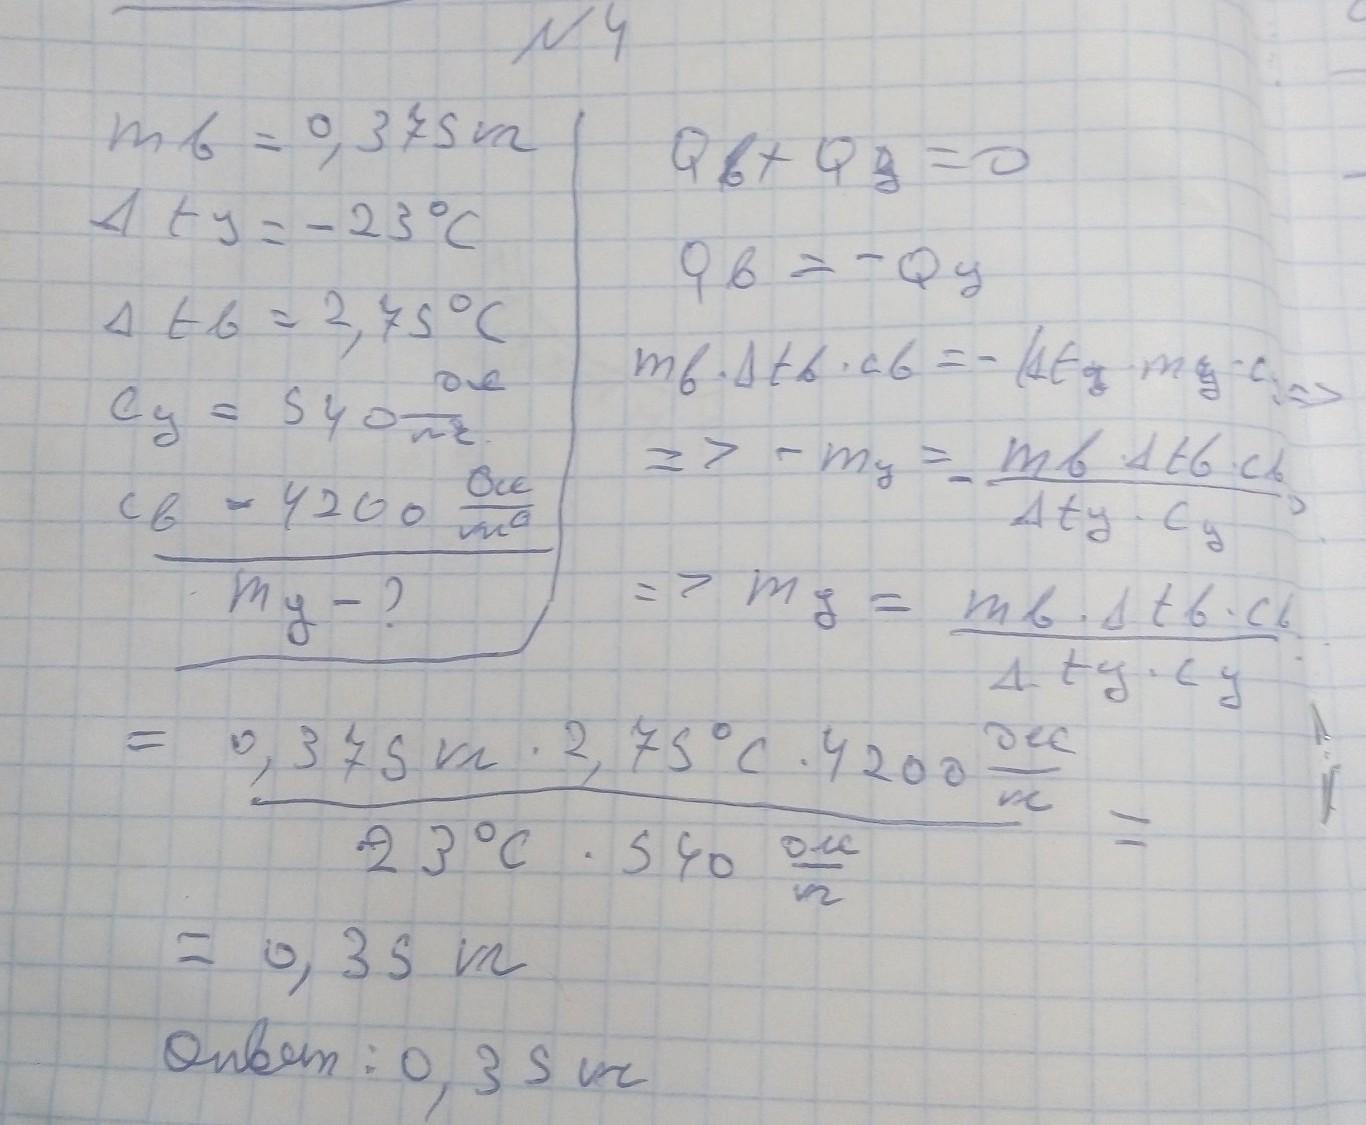 N4
mв = 0,375 кг
Δty = -23°C
Δtв = 2,75°C
cy = 540 Дж/кг
cв - 4200 Дж/кг°
my - ?
Qв + Qy = 0
Qв = -Qy
mв·Δtв·cв = -Δty·my·cy =>
=> -my = mв·Δtв·cв / Δty·cy =>
=> my = - mв·Δtв·cв / Δty·cy
= 0,375 кг · 2,75°C · 4200 Дж/кг / 23°C · 540 Дж/кг =
= 0,35 кг
Ответ: 0,35 кг